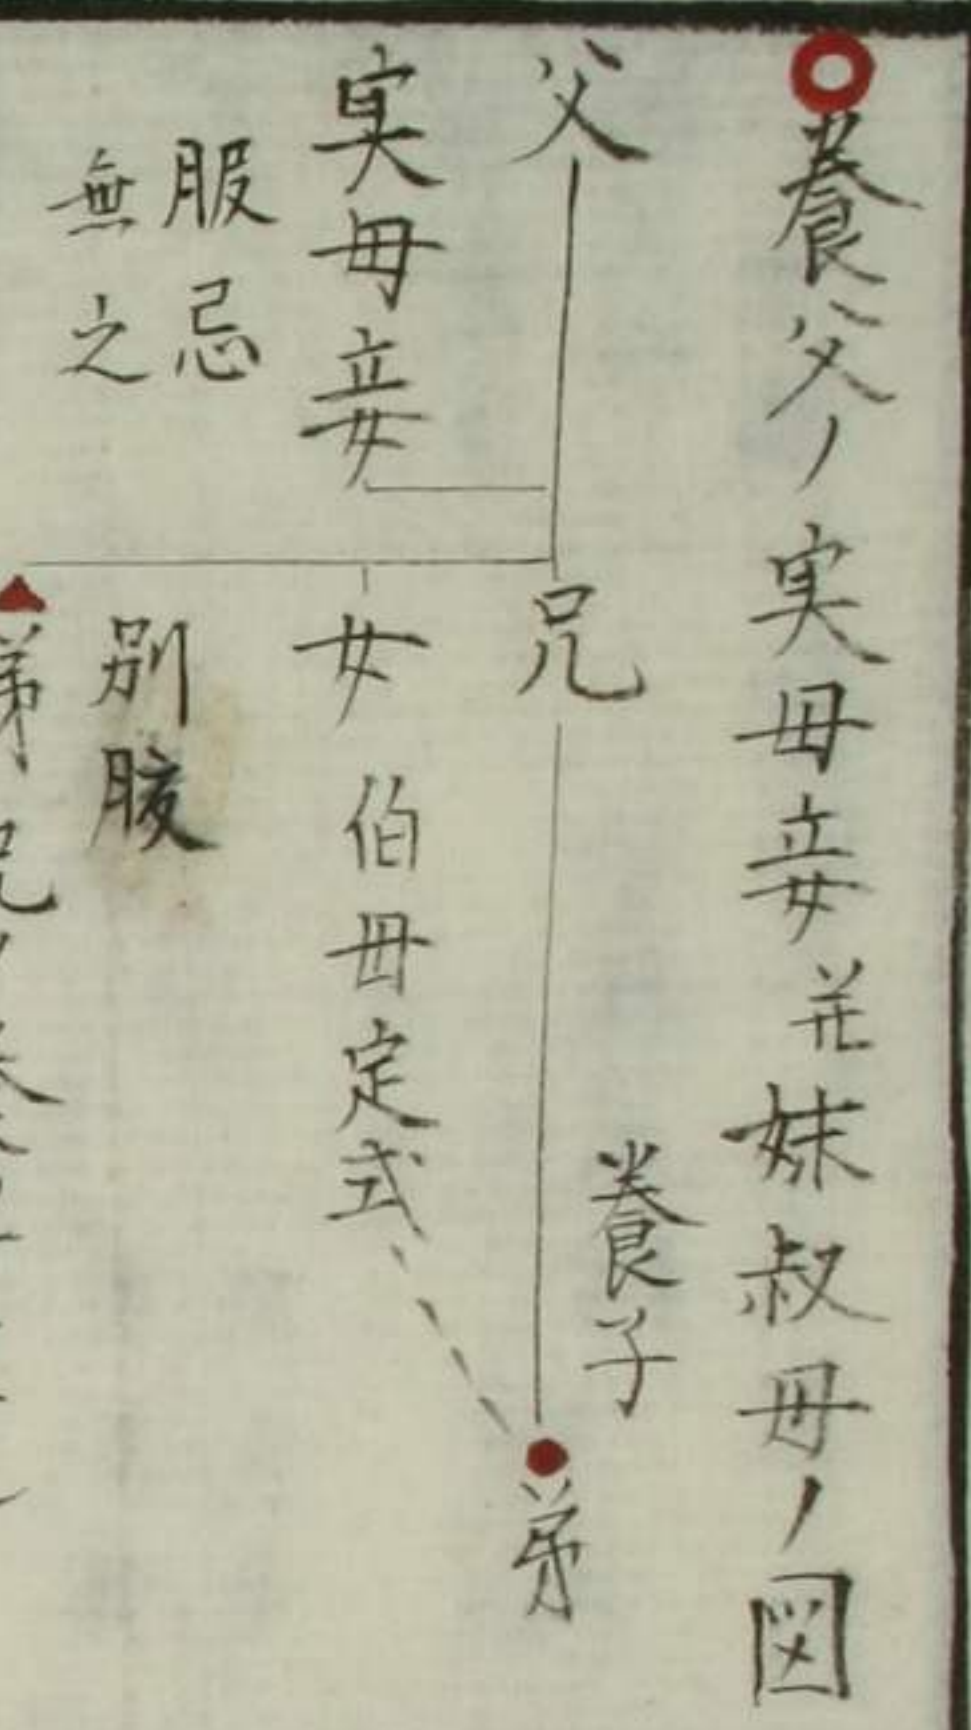 養父ノ実母妾并妹叔母ノ図
父
実母妾
服忌
無之
兄
養子
弟
女 伯母定式
別腹
弟